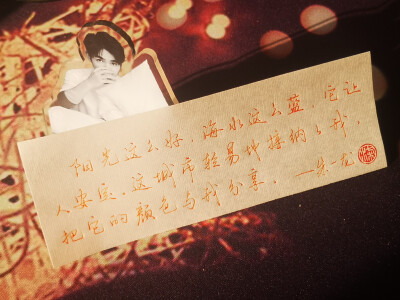 阳光这么好，海水这么蓝，它让
人安定，这城市轻易地接纳了我，
把它的颜色与我分享。—朱一龙